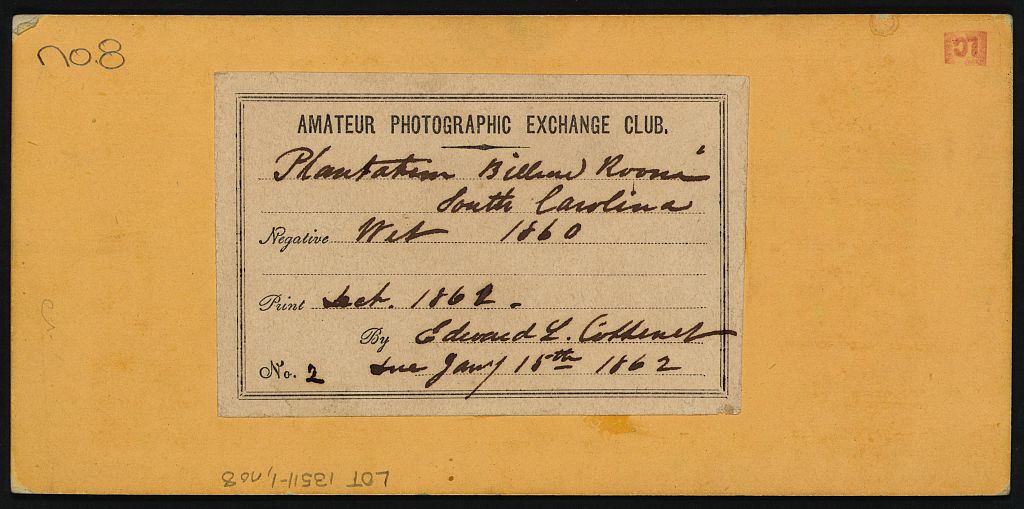 no.8
LC
AMATEUR PHOTOGRAPHIC EXCHANGE CLUB.
Plantation Billiard Room
South Carolina
Negative Wet 1860
Print 1861.
By Edward L. Cottenet
No. 2 due Jany 15th 1862
LOT 13511-1, no 8